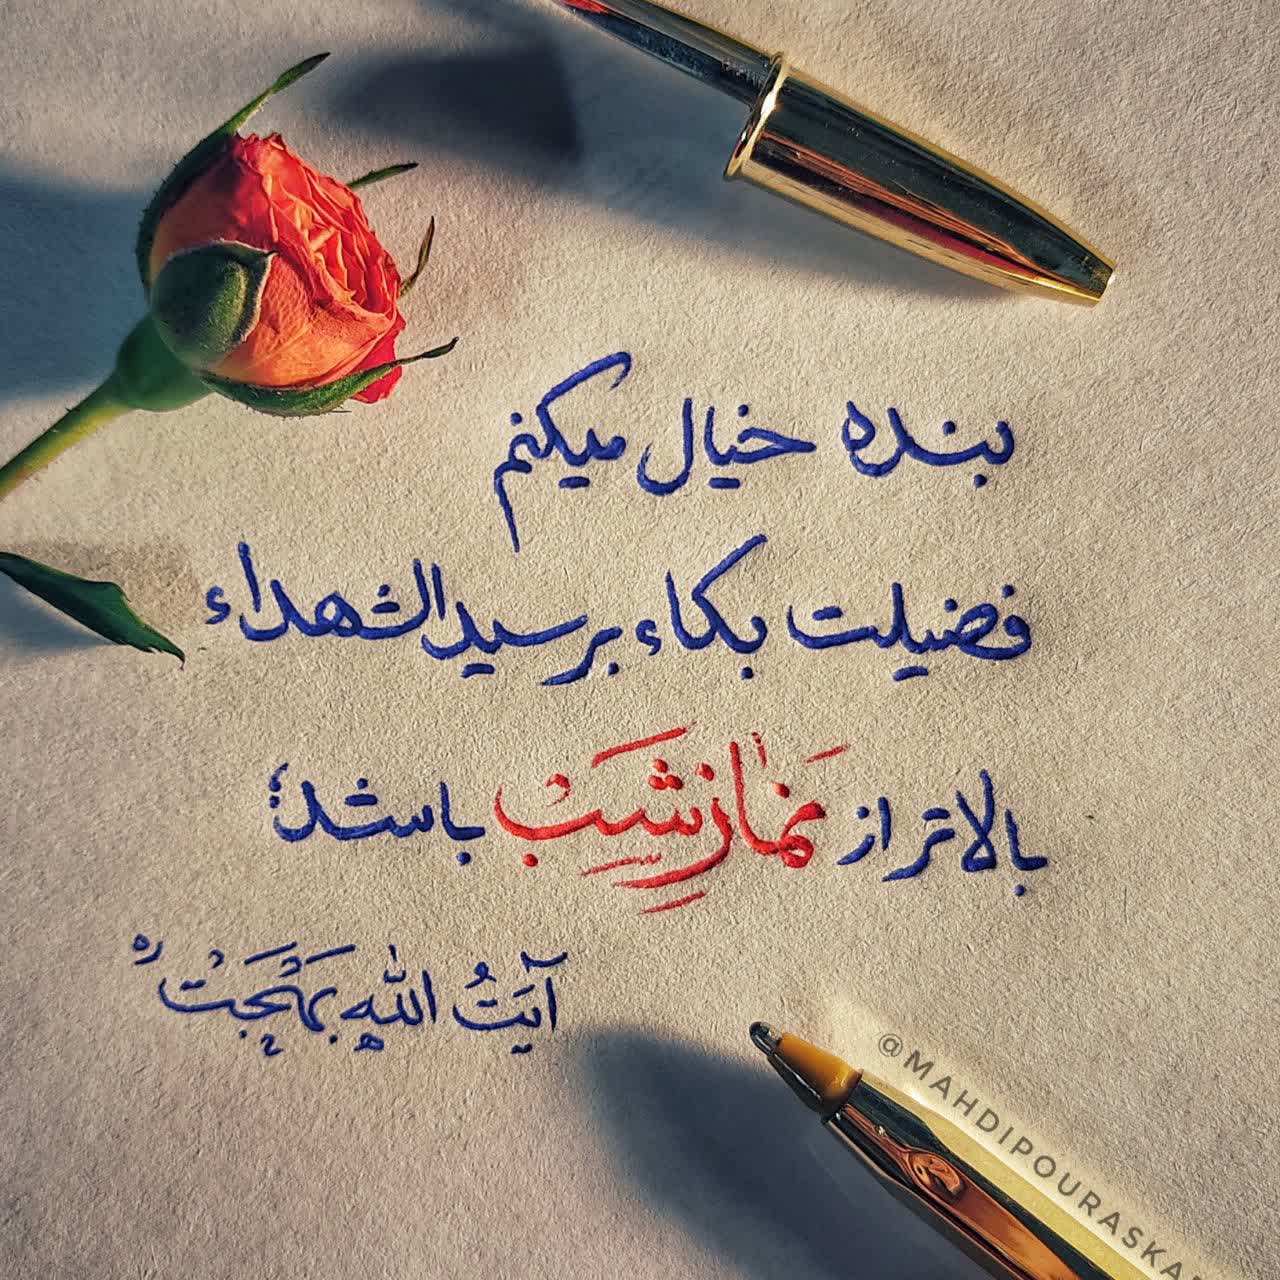 بنده خیال میکنم
فضیلت بکاء بر سیدالشهداء
بالاتر از نماز شب باشد؛
آیت الله بهجت ره
@MAHDIPOURASKA